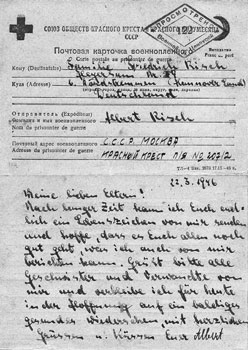 СОЮЗ ОБЩЕСТВ КРАСНОГО КРЕСТА и КРАСНОГО ПОЛУМЕСЯЦА
СССР
ПРОСМОТРЕНО
Почтовая карточка военнопленного
Carte postale au prisonnier de guerre
Бесплатно
Franc de port
Кому (Destinataire) Familie Friedrich Risch
Куда (Adresse)
(Hannover Land)
Deutschland
Отправитель (Expéditeur)
Фамилия и имя военнопленного
Nom du prisonnier de guerre
Albert Risch
Почтовый адрес военнопленного
Adresse du prisonnier de guerre
С.С.С.Р. МОСКВА
КРАСНЫЙ КРЕСТ П/Я No
22.3.1946
Meine lieben Eltern!
Nach langer Zeit kann ich Euch end-
lich ein Lebenszeichen von mir senden
und hoffe, dass es Euch allen noch
gut geht, was ich auch von mir
berichten kann. Grüßt bitte alle
Geschwister und Verwandte von
mir und verbleibe ich für heute
in der Hoffnung auf ein baldiges
gesundes Wiedersehen, mit herzlichen
Grüssen u. Küssen Euer Albert